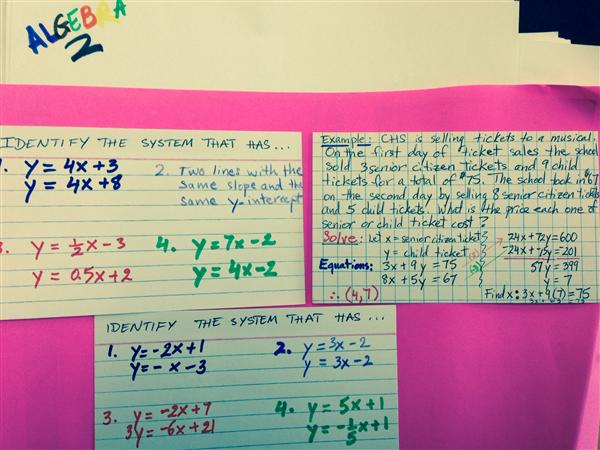 ALGEBRA
2
IDENTIFY THE SYSTEM THAT HAS...
1. y = 4x + 3
y = 4x + 8
2. Two lines with the
same slope and the
same y-intercept
3. y = 1/2 x - 3
y = 0.5x + 2
4. y = 7x - 2
y = 4x - 2
Example: CHS is selling tickets to a musical.
On the first day of ticket sales the school
sold 3 senior citizen tickets and 9 child
tickets for a total of $75. The school took in $67
on the second day by selling 8 senior citizen tickets
and 5 child tickets. What is the price each one of
senior or child ticket cost?
Solve: Let x = senior citizen ticket
y = child ticket
Equations: 3x + 9y = 75
8x + 5y = 67
∴ (4,7)
24x + 72y = 600
-24x + 15y = 201
57y = 399
y = 7
Find x: 3x + 9(7) = 75
IDENTIFY THE SYSTEM THAT HAS...
1. y = -2x + 1
y = -x - 3
2. y = 3x - 2
y = 3x - 2
3. y = -2x + 7
3y = -6x + 21
4. y = 5x + 1
y = -1/5 x + 1